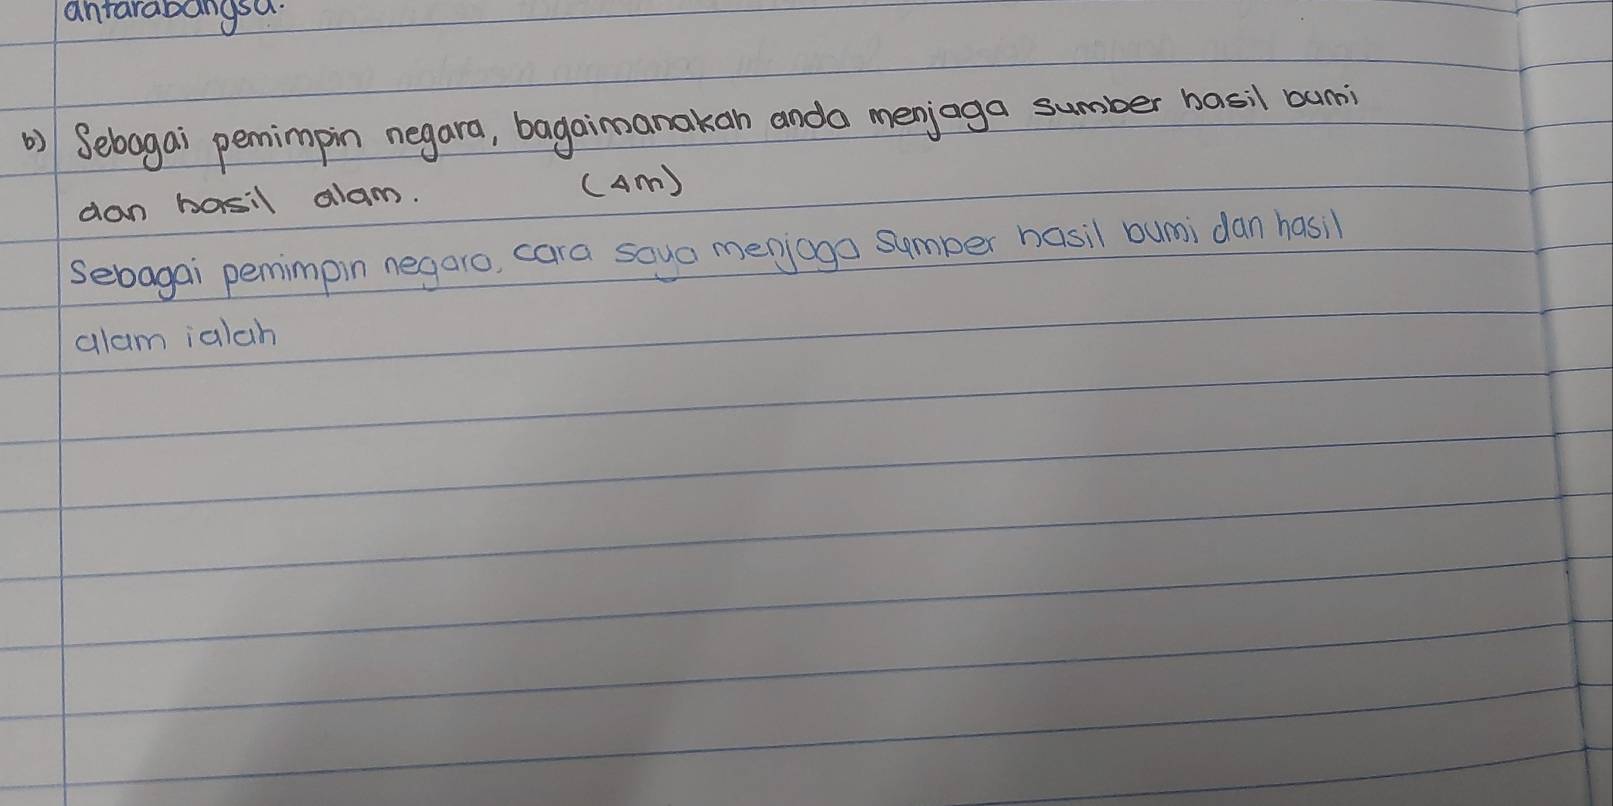 antarabangsa.
b) Sebagai pemimpin negara, bagaimanakah anda menjaga sumber hasil bumi
dan hasil alam. (4m)
Sebagai pemimpin negara, cara saya menjaga sumber hasil bumi dan hasil
alam ialah